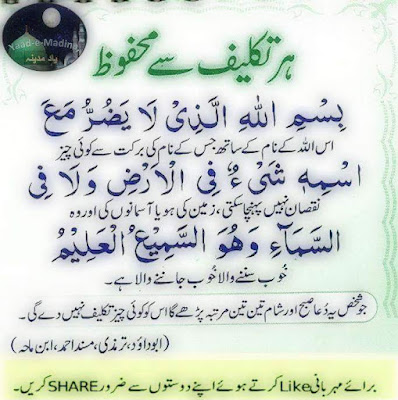 Yaad-e-Madina
یاد مدینہ
ہر تکلیف سے محفوظ
بِسْمِ اللهِ الَّذِىْ لَا يَضُرُّ مَعَ
اس اللہ کے نام کے ساتھ جس کے نام کی برکت سے کوئی چیز
اسْمِهٖ شَىْءٌ فِى الْاَرْضِ وَلَا فِى
نقصان نہیں پہنچا سکتی، زمین کی ہو یا آسمانوں کی اور وہ
السَّمَآءِ وَهُوَ السَّمِيْعُ الْعَلِيْمُ
خوب سننے والا خوب جاننے والا ہے۔
جو شخص یہ دُعا صبح اور شام تین تین مرتبہ پڑھے گا اس کو کوئی چیز تکلیف نہیں دے گی۔
(ابوداؤد، ترمذی، مسند احمد، ابن ماجہ)
برائے مہربانی Like کرتے ہوئے اپنے دوستوں سے ضرور SHARE کریں۔